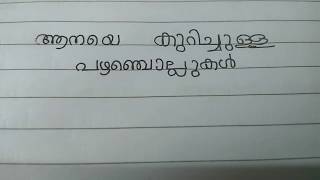 ആനയെ കുറിച്ചുള്ള
പഴഞ്ചൊല്ലുകൾ